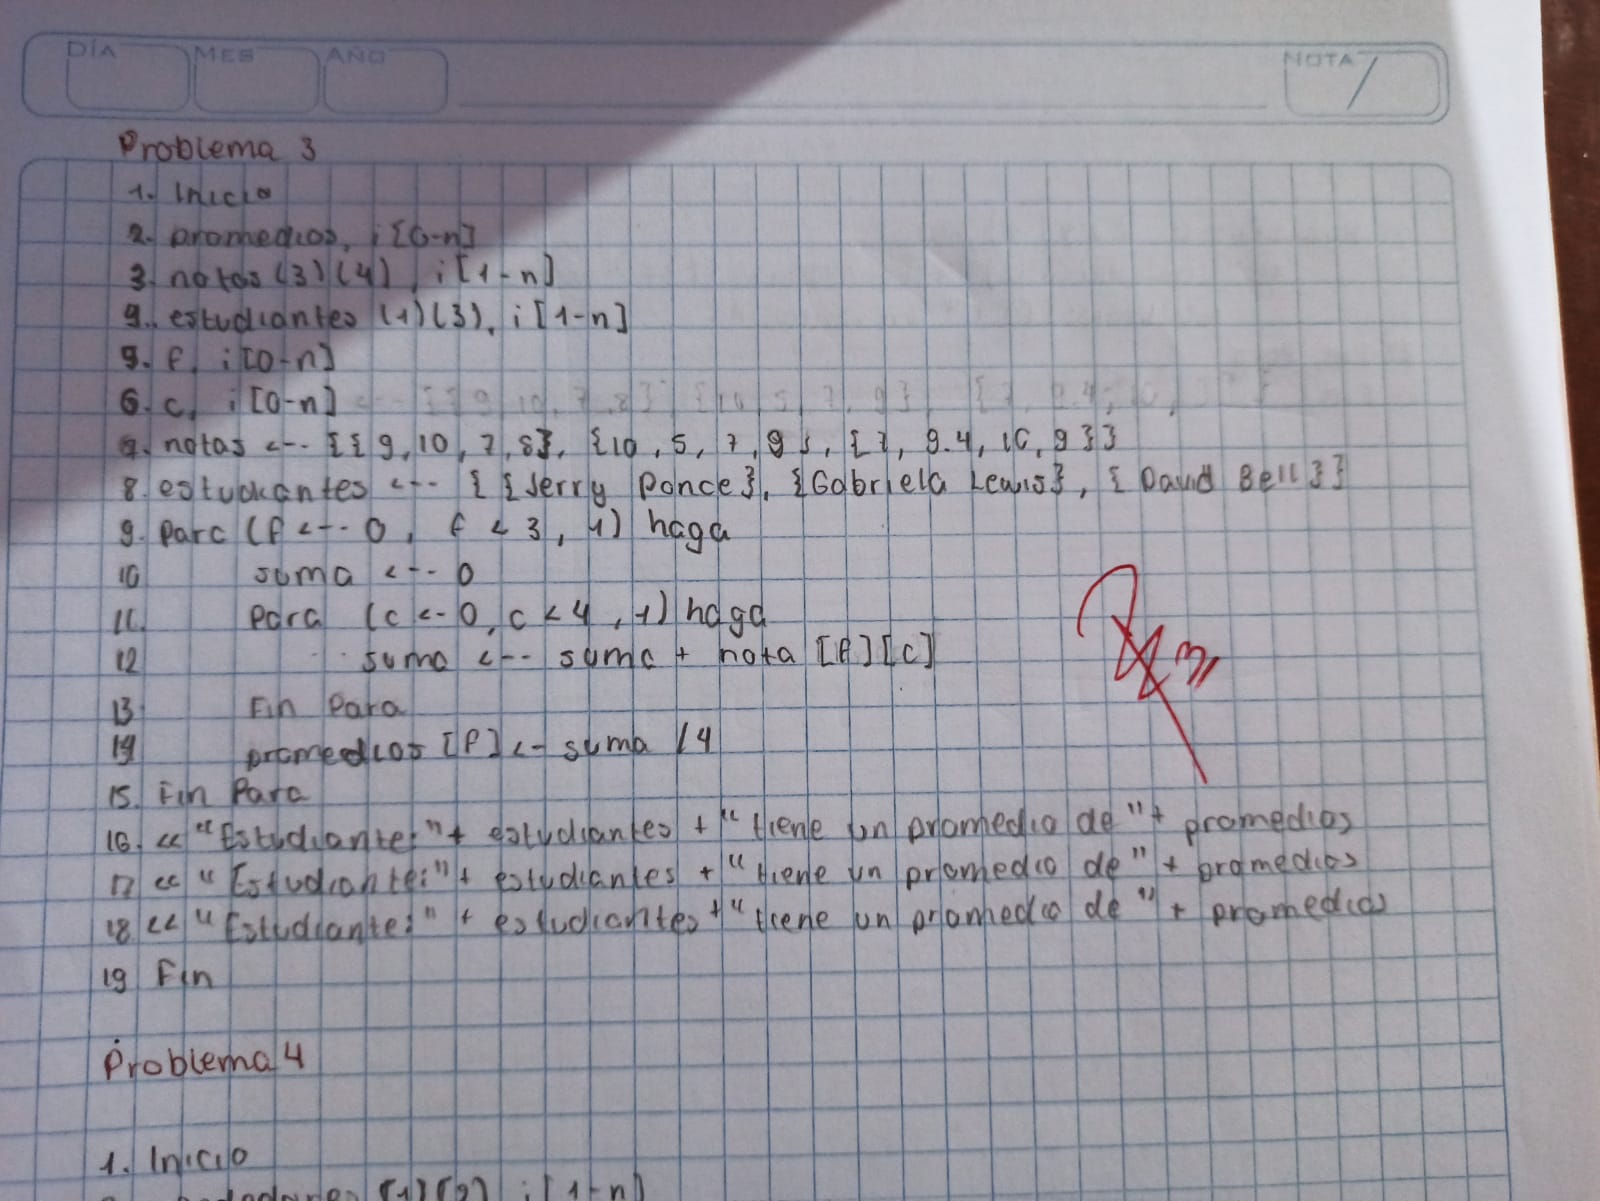 DÍA MES AÑO NOTA
Problema 3
1. Inicio
2. promedios, i [0-n]
3. notas (3)(4), i [1-n]
4. estudiantes (1)(3), i [1-n]
5. f, i [0-n]
6. c, i [0-n]
7. notas <-- {{9, 10, 7, 8}, {10, 5, 7, 9}, {7, 9.4, 10, 9}}
8. estudiantes <-- {{Jerry Ponce}, {Gabriela Lewis}, {David Bell}}
9. Para (f <-- 0, f < 3, 1) haga
10 suma <-- 0
11. Para (c <- 0, c < 4, 1) haga
12 suma <-- suma + nota [f][c]
13 Fin Para
14 promedios [f] <- suma /4
15. Fin Para
16. << "Estudiante:" + estudiantes + "tiene un promedio de" + promedios
17 << "Estudiante:" + estudiantes + "tiene un promedio de" + promedios
18 << "Estudiante:" + estudiantes + "tiene un promedio de" + promedios
19 Fin
Problema 4
1. Inicio
(1)(2) i [1-n]